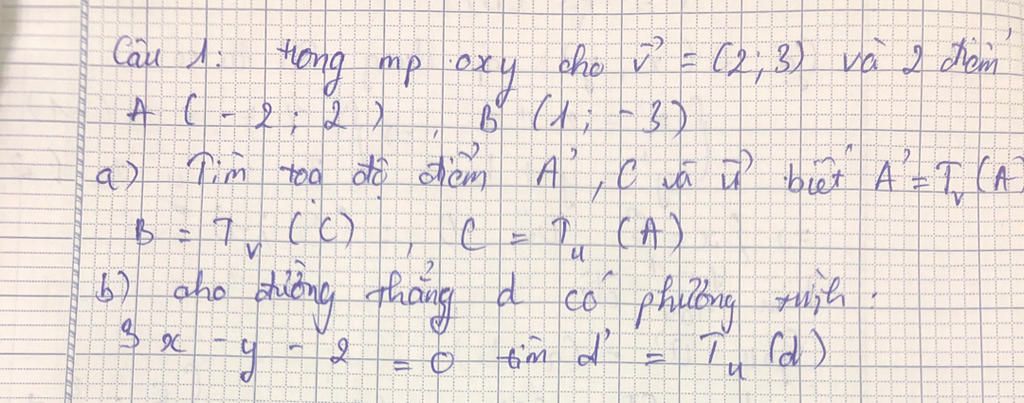 Câu 1: trong mp oxy cho v⃗ = (2; 3) và 2 điểm
A (-2; 2), B (1; -3)
a) Tìm toạ độ điểm A', C và u⃗ biết A' = Tv (A)
B = Tv (C), C = Tu (A)
b) cho đường thẳng d có phương trình.
3x - y - 2 = 0 tìm d' = Tu (d)